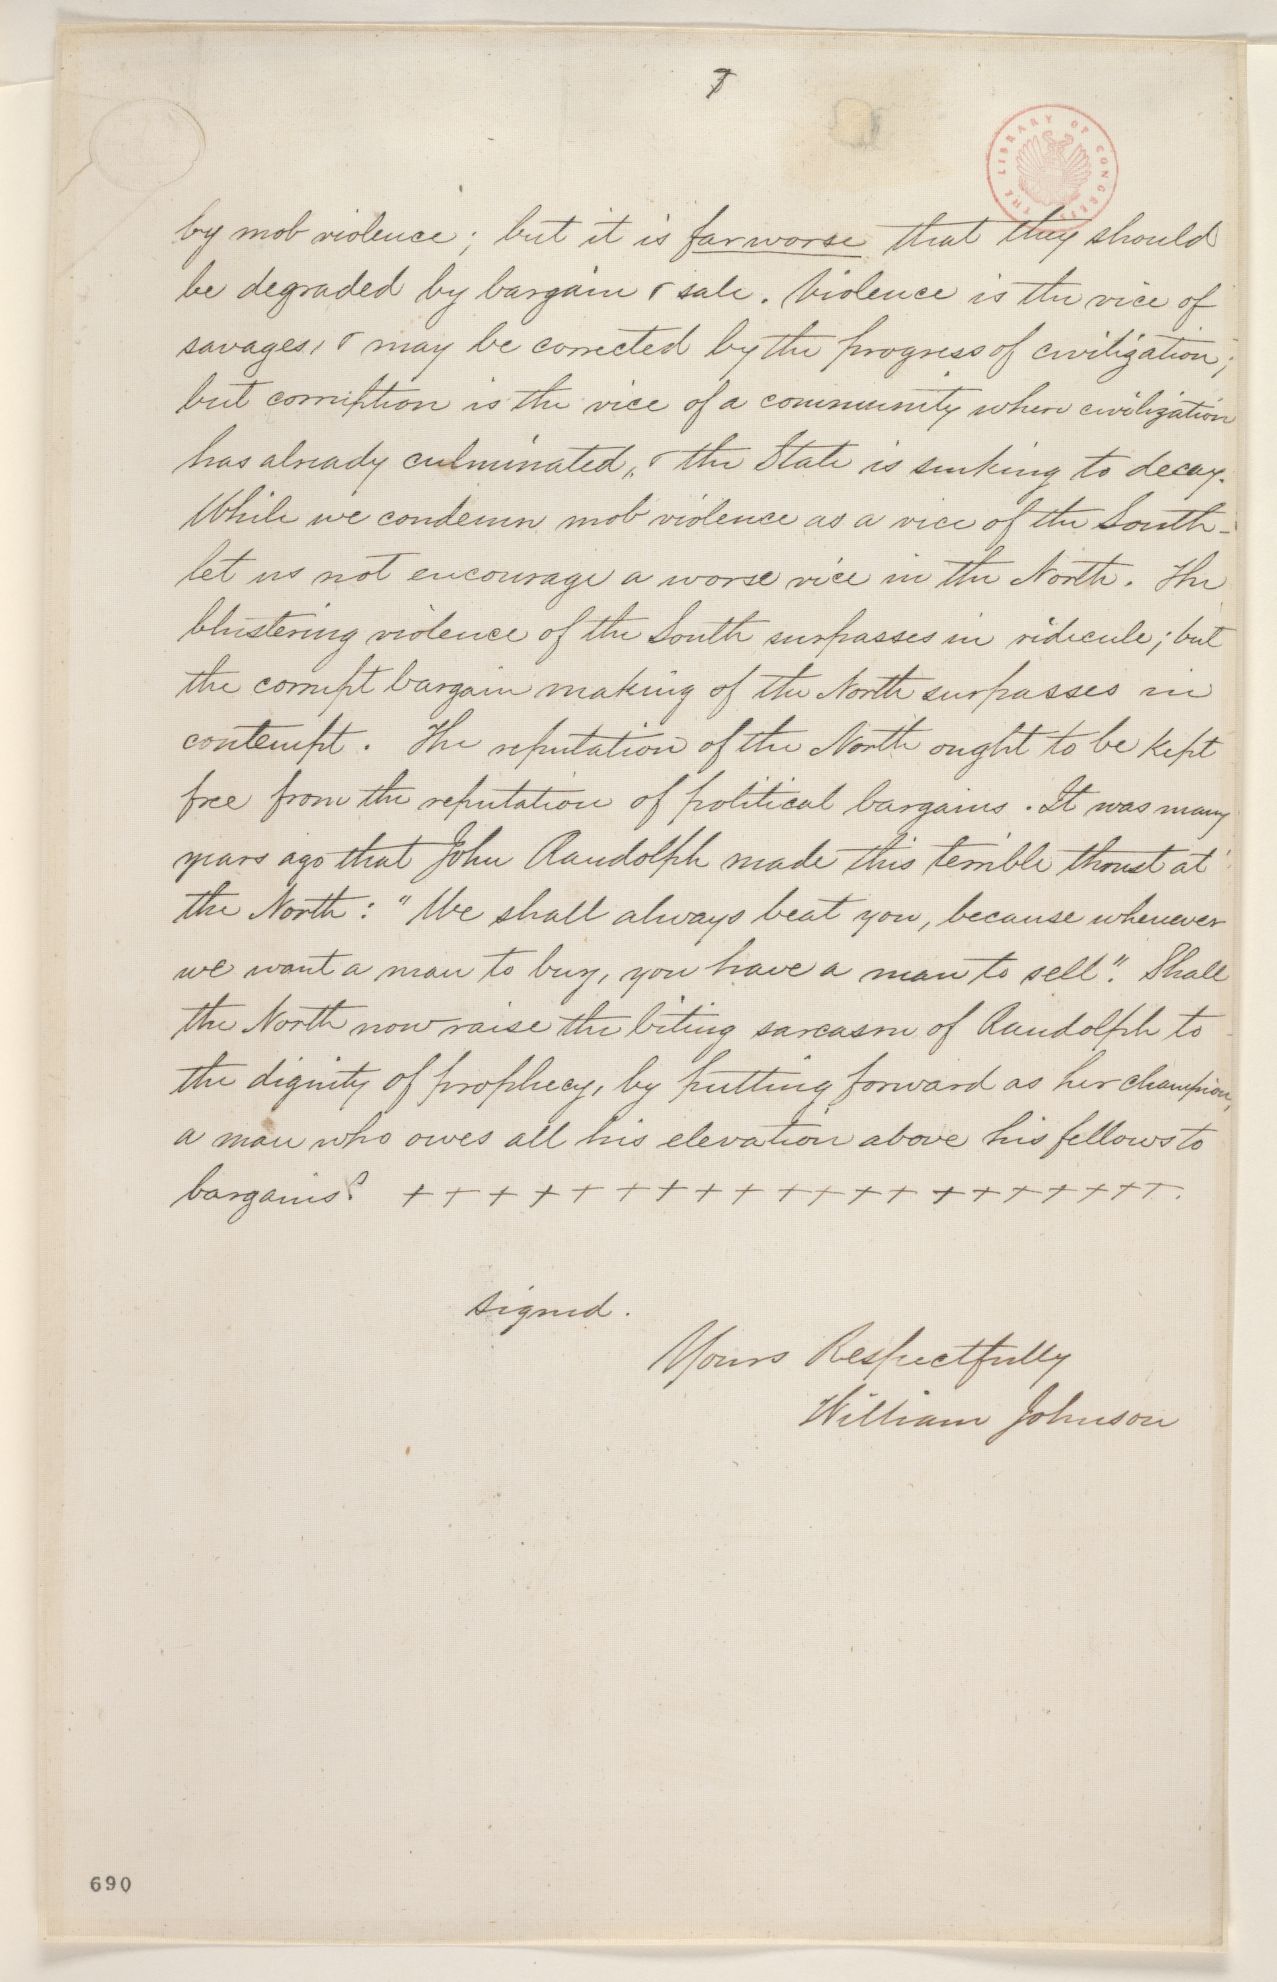 7
THE LIBRARY OF CONGRESS
by mob violence; but it is far worse that they should
be degraded by bargain & sale. Violence is the vice of
savages, & may be corrected by the progress of civilization;
but corruption is the vice of a community where civilization
has already culminated, & the State is sinking to decay.
While we condemn mob violence as a vice of the South -
let us not encourage a worse vice in the North. The
blustering violence of the South surpasses in ridicule; but
the corrupt bargain making of the North surpasses in
contempt. The reputation of the North ought to be kept
free from the reputation of political bargains. It was many
years ago that John Randolph made this terrible thrust at
the North: "We shall always beat you, because whenever
we want a man to buy, you have a man to sell". Shall
the North now raise the biting sarcasm of Randolph to
the dignity of prophecy, by putting forward as her champion,
a man who owes all his elevation above his fellows to
bargains? + + + + + + + + + + + + + + + + + + + +.
signed.
Yours Respectfully
William Johnson
690